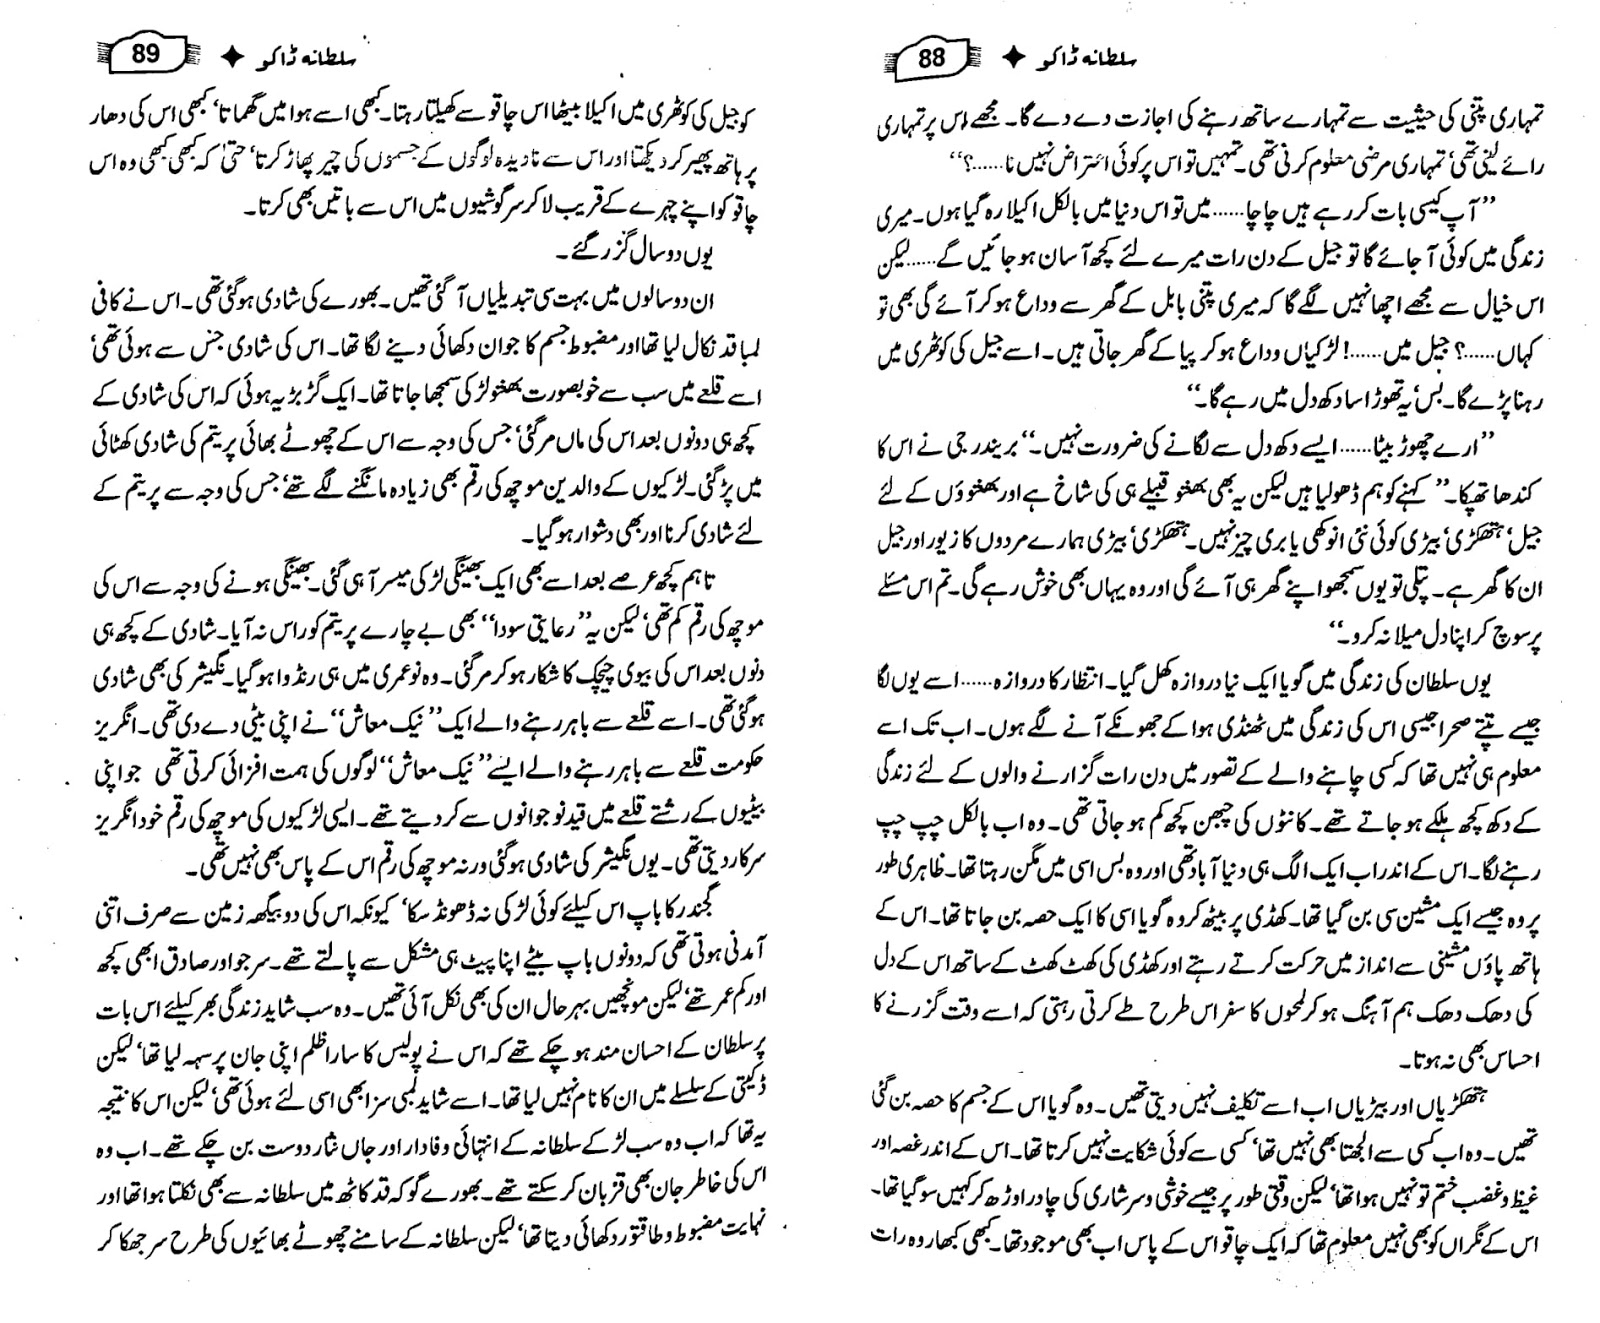 سلطانہ ڈاکو ✦ 88
تمہاری پتنی کی حیثیت سے تمہارے ساتھ رہنے کی اجازت دے دے گا۔ مجھے اس پر تمہاری
رائے لینی تھی‘ تمہاری مرضی معلوم کرنی تھی۔ تمہیں تو اس پر کوئی اعتراض نہیں نا......؟‘‘
’’آپ کیسی بات کر رہے ہیں چاچا...... میں تو اس دنیا میں بالکل اکیلا رہ گیا ہوں۔ میری
زندگی میں کوئی آ جائے گا تو جیل کے دن رات میرے لئے کچھ آسان ہو جائیں گے...... لیکن
اس خیال سے مجھے اچھا نہیں لگے گا کہ میری پتنی بابل کے گھر سے وداع ہو کر آئے گی بھی تو
کہاں......؟ جیل میں......! لڑکیاں وداع ہو کر پیا کے گھر جاتی ہیں۔ اسے جیل کی کوٹھری میں
رہنا پڑے گا۔ بس‘ یہ تھوڑا سا دکھ دل میں رہے گا۔‘‘
’’ارے چھوڑ بیٹا...... ایسے دکھ دل سے لگانے کی ضرورت نہیں۔‘‘ بریندرجی نے اس کا
کندھا تھپکا۔ ’’کہنے کو ہم ڈھولیا ہیں لیکن یہ بھی بھنتو قبیلے ہی کی شاخ ہے اور بھنتوؤں کے لئے
جیل‘ ہتھکڑی‘ بیڑی کوئی نئی انوکھی یا بری چیز نہیں۔ ہتھکڑی‘ بیڑی ہمارے مردوں کا زیور اور جیل
ان کا گھر ہے۔ پتلی تو یوں سمجھو اپنے گھر ہی آئے گی اور وہ یہاں بھی خوش رہے گی۔ تم اس مسئلے
پر سوچ کر اپنا دل میلا نہ کرو۔‘‘
یوں سلطان کی زندگی میں گویا ایک نیا دروازہ کھل گیا۔ انتظار کا دروازہ...... اسے یوں لگا
جیسے تپتے صحرا جیسی اس کی زندگی میں ٹھنڈی ہوا کے جھونکے آنے لگے ہوں۔ اب تک اسے
معلوم ہی نہیں تھا کہ کسی چاہنے والے کے تصور میں دن رات گزارنے والوں کے لئے زندگی
کے دکھ کچھ ہلکے ہو جاتے تھے۔ کانٹوں کی چبھن کچھ کم ہو جاتی تھی۔ وہ اب بالکل چپ چپ
رہنے لگا۔ اس کے اندر اب ایک الگ ہی دنیا آباد تھی اور وہ بس اسی میں مگن رہتا تھا۔ ظاہری طور
پر وہ جیسے ایک مشین سی بن گیا تھا۔ کھڈی پر بیٹھ کر وہ گویا اسی کا ایک حصہ بن جاتا تھا۔ اس کے
ہاتھ پاؤں مشینی سے انداز میں حرکت کرتے رہتے اور کھڈی کی کھٹ کھٹ کے ساتھ اس کے دل
کی دھک دھک ہم آہنگ ہو کر لمحوں کا سفر اس طرح طے کرتی رہتی کہ اسے وقت گزرنے کا
احساس بھی نہ ہوتا۔
ہتھکڑیاں اور بیڑیاں اب اسے تکلیف نہیں دیتی تھیں۔ وہ گویا اس کے جسم کا حصہ بن گئی
تھیں۔ وہ اب کسی سے الجھتا بھی نہیں تھا‘ کسی سے کوئی شکایت نہیں کرتا تھا۔ اس کے اندر غصہ اور
غیظ و غضب ختم تو نہیں ہوا تھا‘ لیکن وقتی طور پر جیسے خوشی و سرشاری کی چادر اوڑھ کر کہیں سو گیا تھا۔
اس کے نگراں کو بھی نہیں معلوم تھا کہ ایک چاقو اس کے پاس اب بھی موجود تھا۔ کبھی کبھار وہ رات
سلطانہ ڈاکو ✦ 89
کو جیل کی کوٹھری میں اکیلا بیٹھا اس چاقو سے کھیلتا رہتا۔ کبھی اسے ہوا میں گھماتا‘ کبھی اس کی دھار
پر ہاتھ پھیر کر دیکھتا اور اس سے نادیدہ لوگوں کے جسموں کی چیر پھاڑ کرتا‘ حتیٰ کہ کبھی کبھی وہ اس
چاقو کو اپنے چہرے کے قریب لا کر سرگوشیوں میں اس سے باتیں بھی کرتا۔
یوں دو سال گزر گئے۔
ان دو سالوں میں بہت سی تبدیلیاں آ گئی تھیں۔ بھورے کی شادی ہو گئی تھی۔ اس نے کافی
لمبا قد نکال لیا تھا اور مضبوط جسم کا جوان دکھائی دینے لگا تھا۔ اس کی شادی جس سے ہوئی تھی‘
اسے قلعے میں سب سے خوبصورت بھنتو لڑکی سمجھا جاتا تھا۔ ایک گڑ بڑ یہ ہوئی کہ اس کی شادی کے
کچھ ہی دونوں بعد اس کی ماں مر گئی‘ جس کی وجہ سے اس کے چھوٹے بھائی پریتم کی شادی کھٹائی
میں پڑ گئی۔ لڑکیوں کے والدین موچھ کی رقم بھی زیادہ مانگنے لگے تھے‘ جس کی وجہ سے پریتم کے
لئے شادی کرنا اور بھی دشوار ہو گیا۔
تاہم کچھ عرصے بعد اسے بھی ایک بھینگی لڑکی میسر آ ہی گئی۔ بھینگی ہونے کی وجہ سے اس کی
موچھ کی رقم کم تھی‘ لیکن یہ ’’رعایتی سودا‘‘ بھی بے چارے پریتم کو راس نہ آیا۔ شادی کے کچھ ہی
دنوں بعد اس کی بیوی چیچک کا شکار ہو کر مر گئی۔ وہ نوعمری میں ہی رنڈوا ہو گیا۔ نگیشر کی بھی شادی
ہو گئی تھی۔ اسے قلعے سے باہر رہنے والے ایک ’’نیک معاش‘‘ نے اپنی بیٹی دے دی تھی۔ انگریز
حکومت قلعے سے باہر رہنے والے ایسے ’’نیک معاش‘‘ لوگوں کی ہمت افزائی کرتی تھی جو اپنی
بیٹیوں کے رشتے قلعے میں قید نوجوانوں سے کر دیتے تھے۔ ایسی لڑکیوں کی موچھ کی رقم خود انگریز
سرکار دیتی تھی۔ یوں نگیشر کی شادی ہو گئی ورنہ موچھ کی رقم اس کے پاس بھی نہیں تھی۔
گجندر کا باپ اس کیلئے کوئی لڑکی نہ ڈھونڈ سکا‘ کیونکہ اس کی دو بیگھہ زمین سے صرف اتنی
آمدنی ہوتی تھی کہ دونوں باپ بیٹے اپنا پیٹ ہی مشکل سے پالتے تھے۔ سرجو اور صادق ابھی کچھ
اور کم عمر تھے‘ لیکن مونچھیں بہرحال ان کی بھی نکل آئی تھیں۔ وہ سب شاید زندگی بھر کیلئے اس بات
پر سلطان کے احسان مند ہو چکے تھے کہ اس نے پولیس کا سارا ظلم اپنی جان پر سہہ لیا تھا‘ لیکن
ڈکیتی کے سلسلے میں ان کا نام نہیں لیا تھا۔ اسے شاید لمبی سزا بھی اسی لئے ہوئی تھی‘ لیکن اس کا نتیجہ
یہ تھا کہ اب وہ سب لڑکے سلطانہ کے انتہائی وفادار اور جاں نثار دوست بن چکے تھے۔ اب وہ
اس کی خاطر جان بھی قربان کر سکتے تھے۔ بھورے گو کہ قد کاٹھ میں سلطانہ سے بھی نکلتا ہوا تھا اور
نہایت مضبوط و طاقتور دکھائی دیتا تھا‘ لیکن سلطانہ کے سامنے چھوٹے بھائیوں کی طرح سر جھکا کر